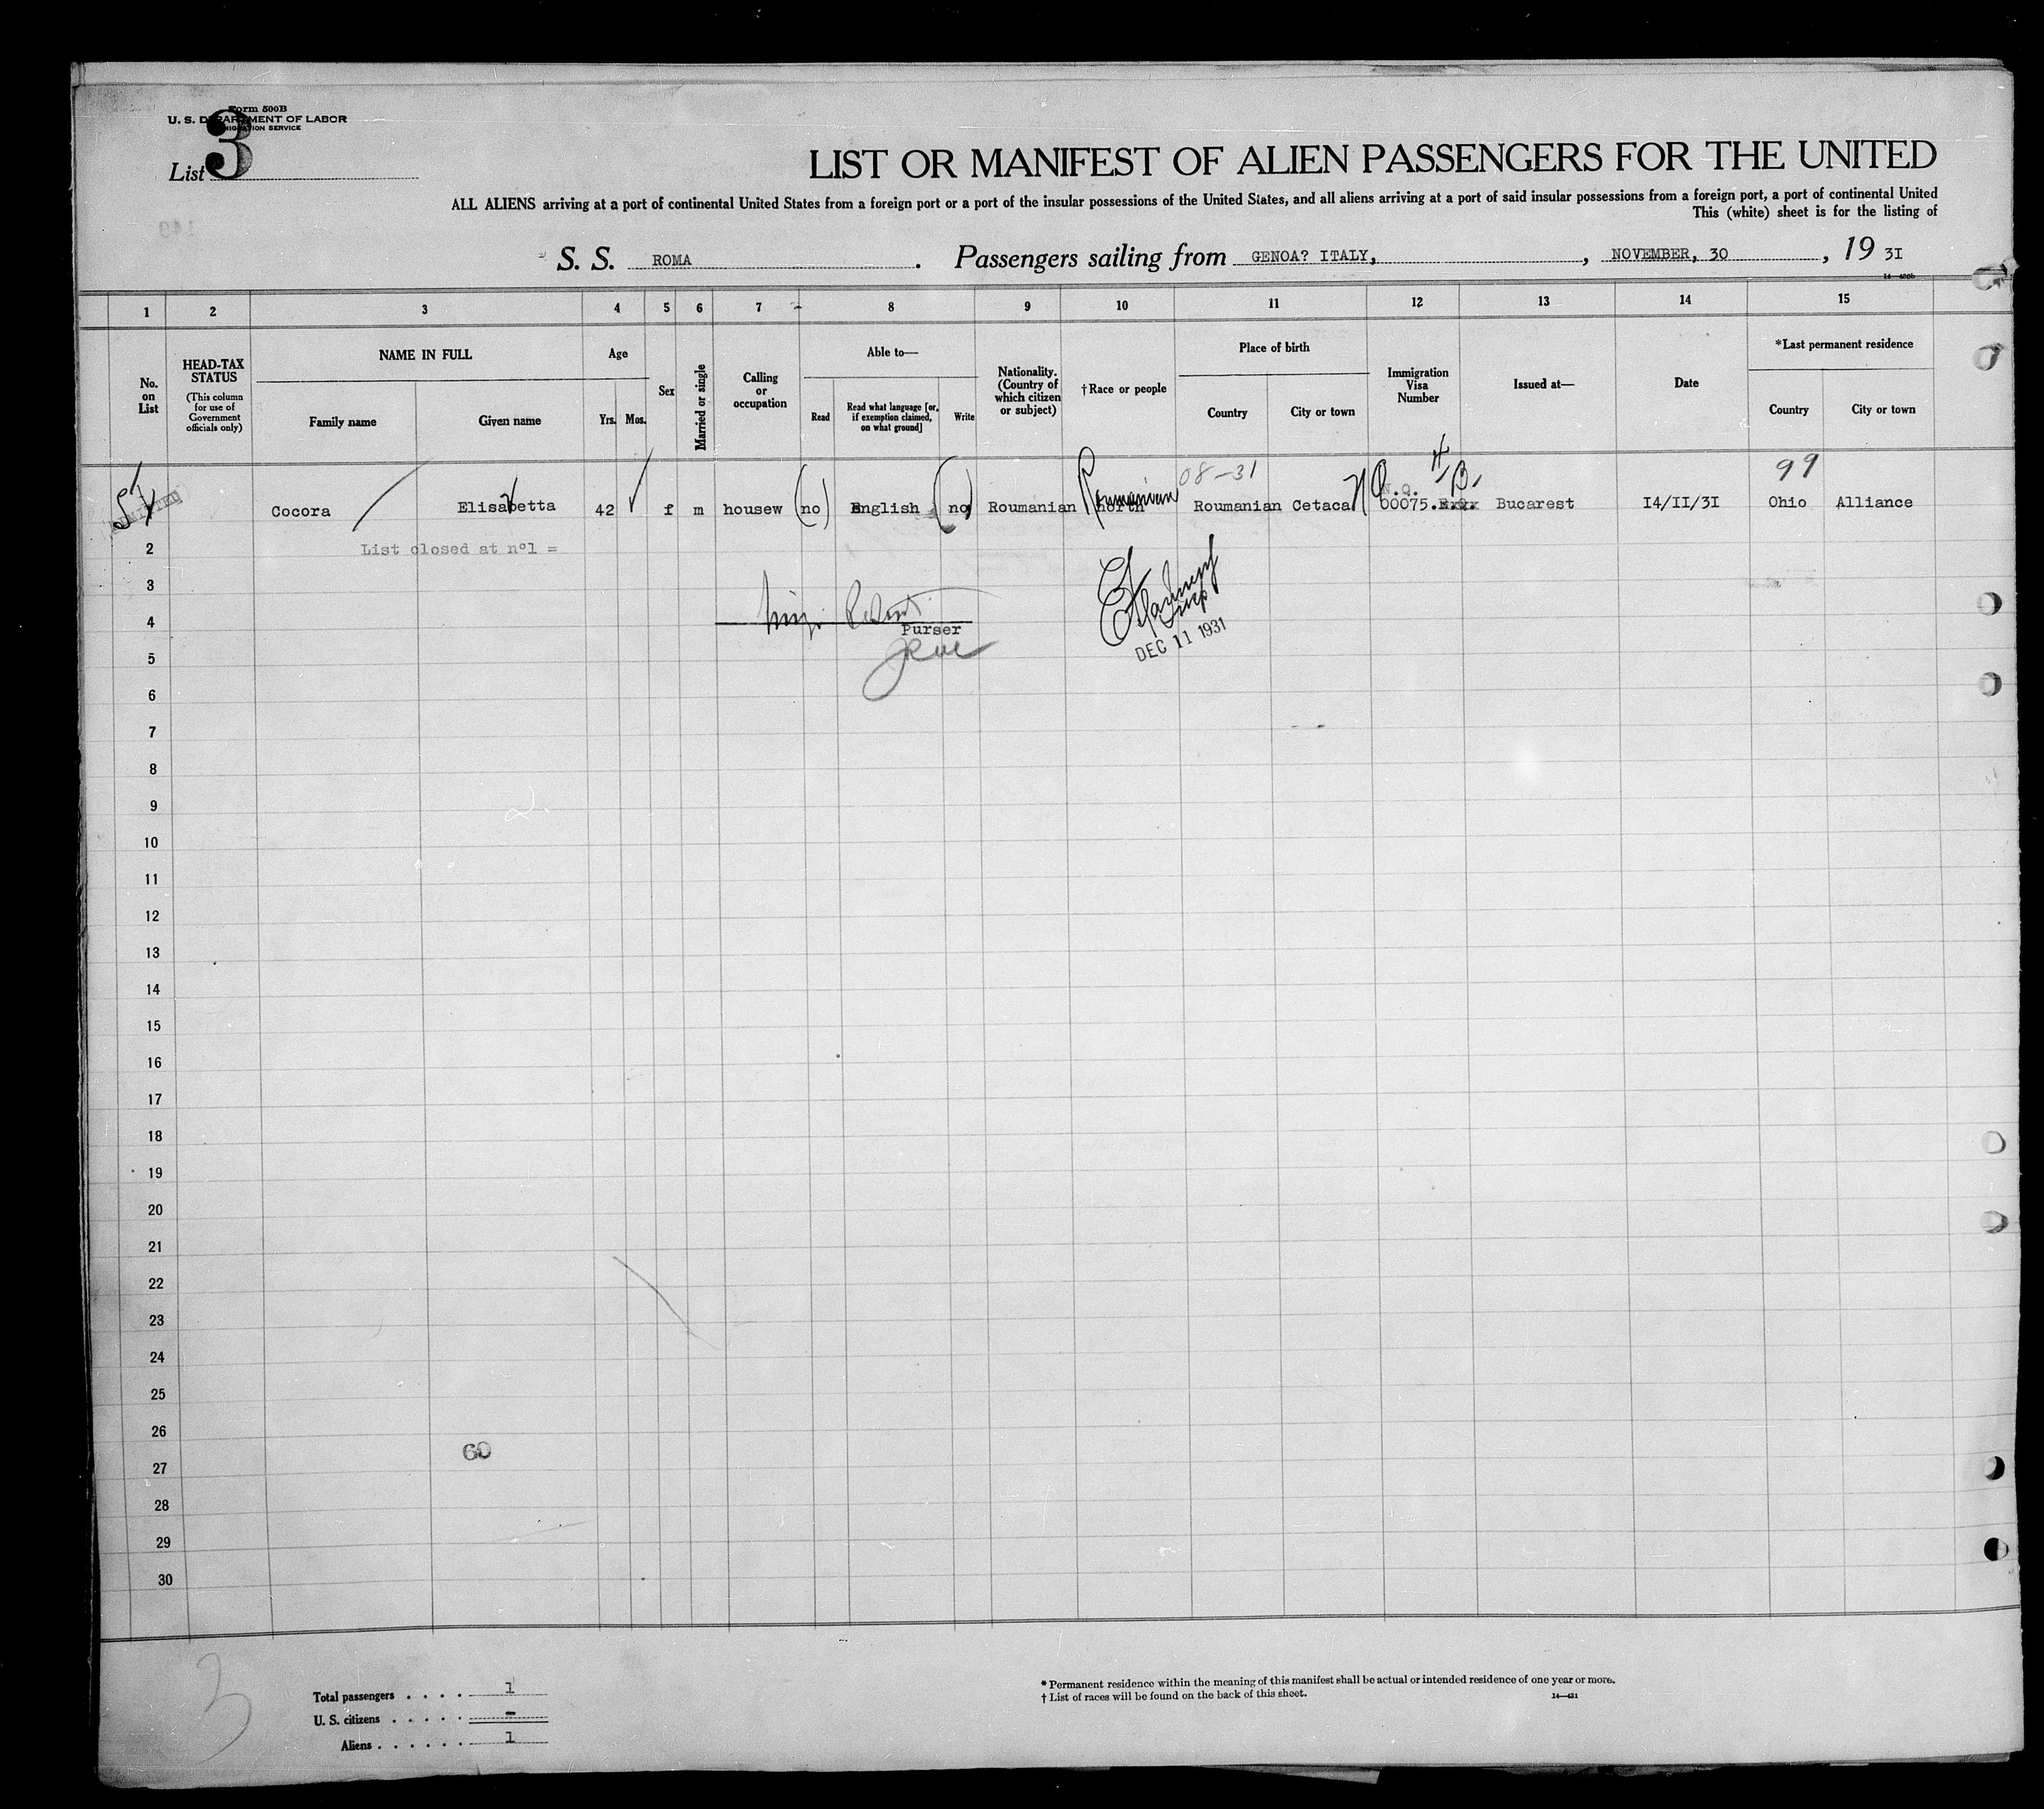 Form 500B
U. S. DEPARTMENT OF LABOR
IMMIGRATION SERVICE
List 3
LIST OR MANIFEST OF ALIEN PASSENGERS FOR THE UNITED
ALL ALIENS arriving at a port of continental United States from a foreign port or a port of the insular possessions of the United States, and all aliens arriving at a port of said insular possessions from a foreign port, a port of continental United
This (white) sheet is for the listing of
S. S. ROMA. Passengers sailing from GENOA? ITALY, , NOVEMBER, 30 , 19 3I
1 2 3 4 5 6 7 8 9 10 11 12 13 14 15
No. on List
HEAD-TAX STATUS
(This column for use of Government officials only)
NAME IN FULL
Family name
Given name
Age
Yrs. Mos.
Sex
Married or single
Calling or occupation
Able to—
Read
Read what language [or, if exemption claimed, on what ground]
Write
Nationality. (Country of which citizen or subject)
†Race or people
Place of birth
Country
City or town
Immigration Visa Number
Issued at—
Date
*Last permanent residence
Country
City or town
08-31
99
Cocora Elisabetta 42 f m housew (no) English (no) Roumanian north Roumanian Roumanian Cetaca 00075. Bucarest I4/II/3I Ohio Alliance
2 List closed at nº1 =
3
4
Purser
5
DEC 11 1931
6
7
8
9
10
11
12
13
14
15
16
17
18
19
20
21
22
23
24
25
26
60
27
28
29
30
3
Total passengers . . . . 1
U. S. citizens . . . . . -
Aliens . . . . . . 1
* Permanent residence within the meaning of this manifest shall be actual or intended residence of one year or more.
† List of races will be found on the back of this sheet.
14—431